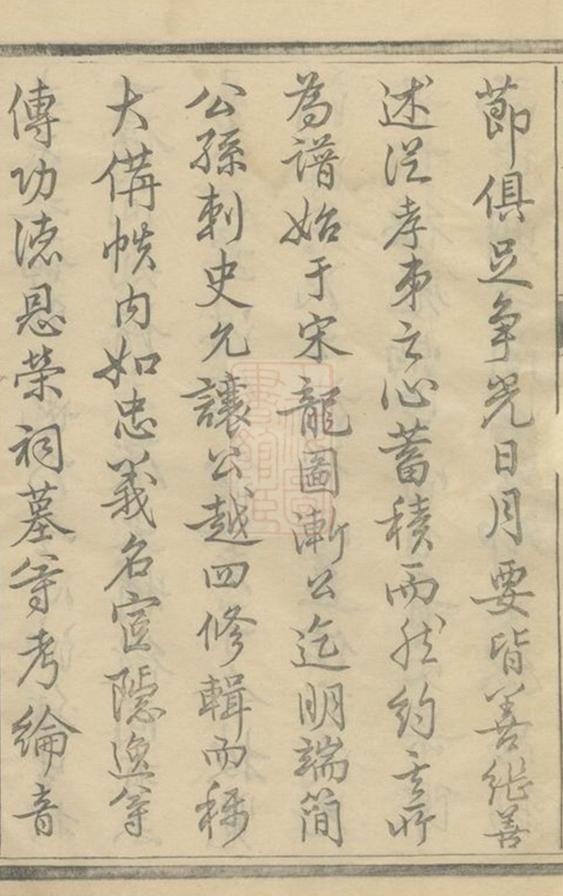 節俱足争光日月要皆善继善
述從孝弟之心蓄積而然約之所
為譜始于宋龍圖漸公迄明端簡
公孫刺史允讓公越四修輯而稱
大備帙内如忠義名宦隱逸等
傳功德恩榮祠墓等考綸音